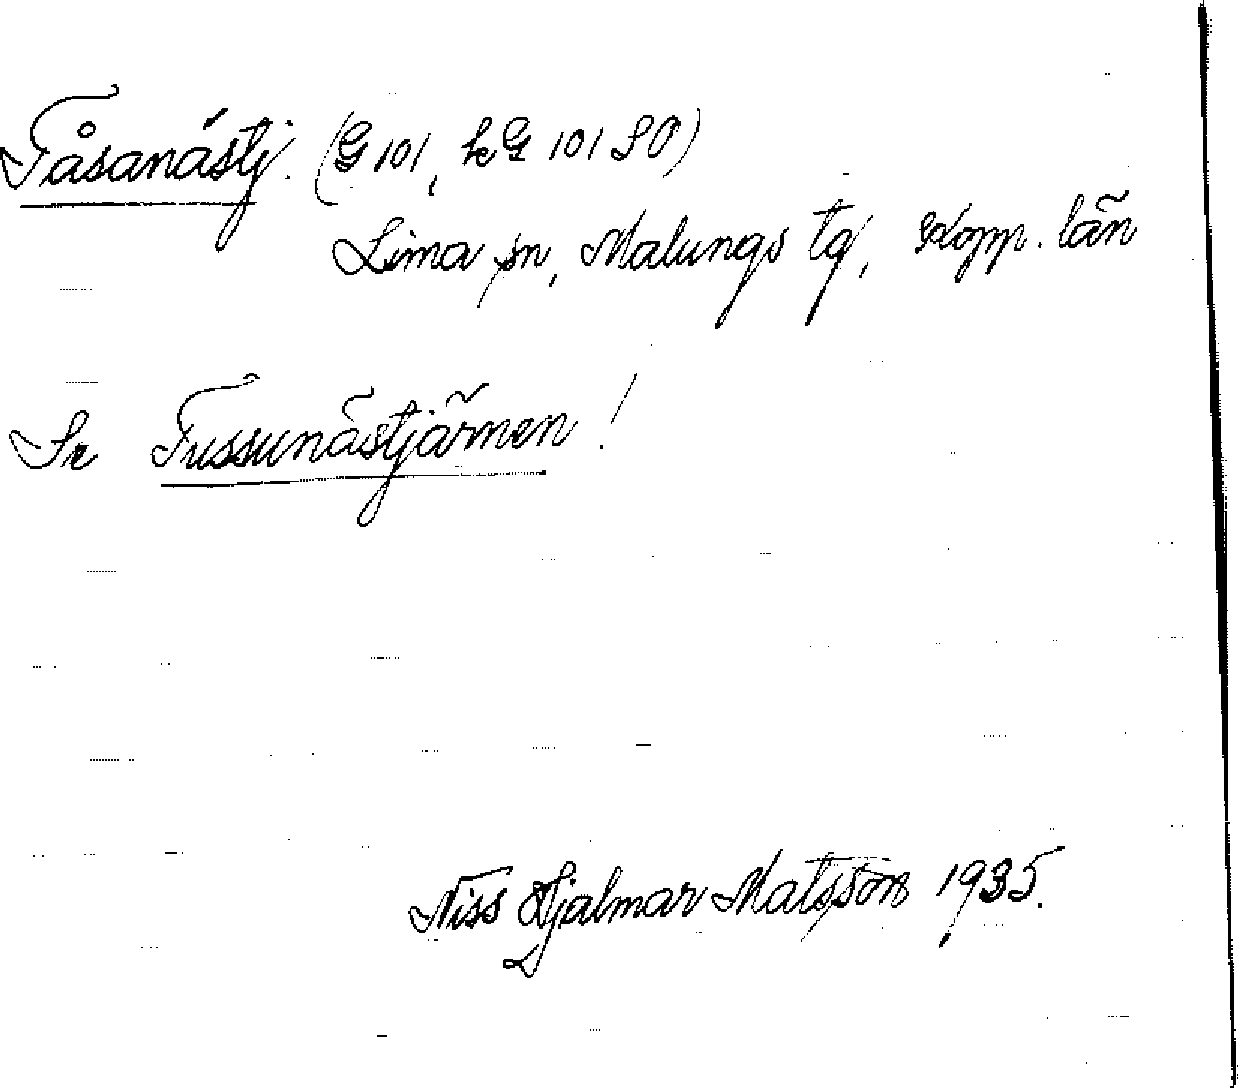 Tåsanästj. (G 101, kG 101 SO)
Lima sn, Malungs tg, Kopp. län
Se Tussunästjärnen!
Niss Hjalmar Matsson 1935.